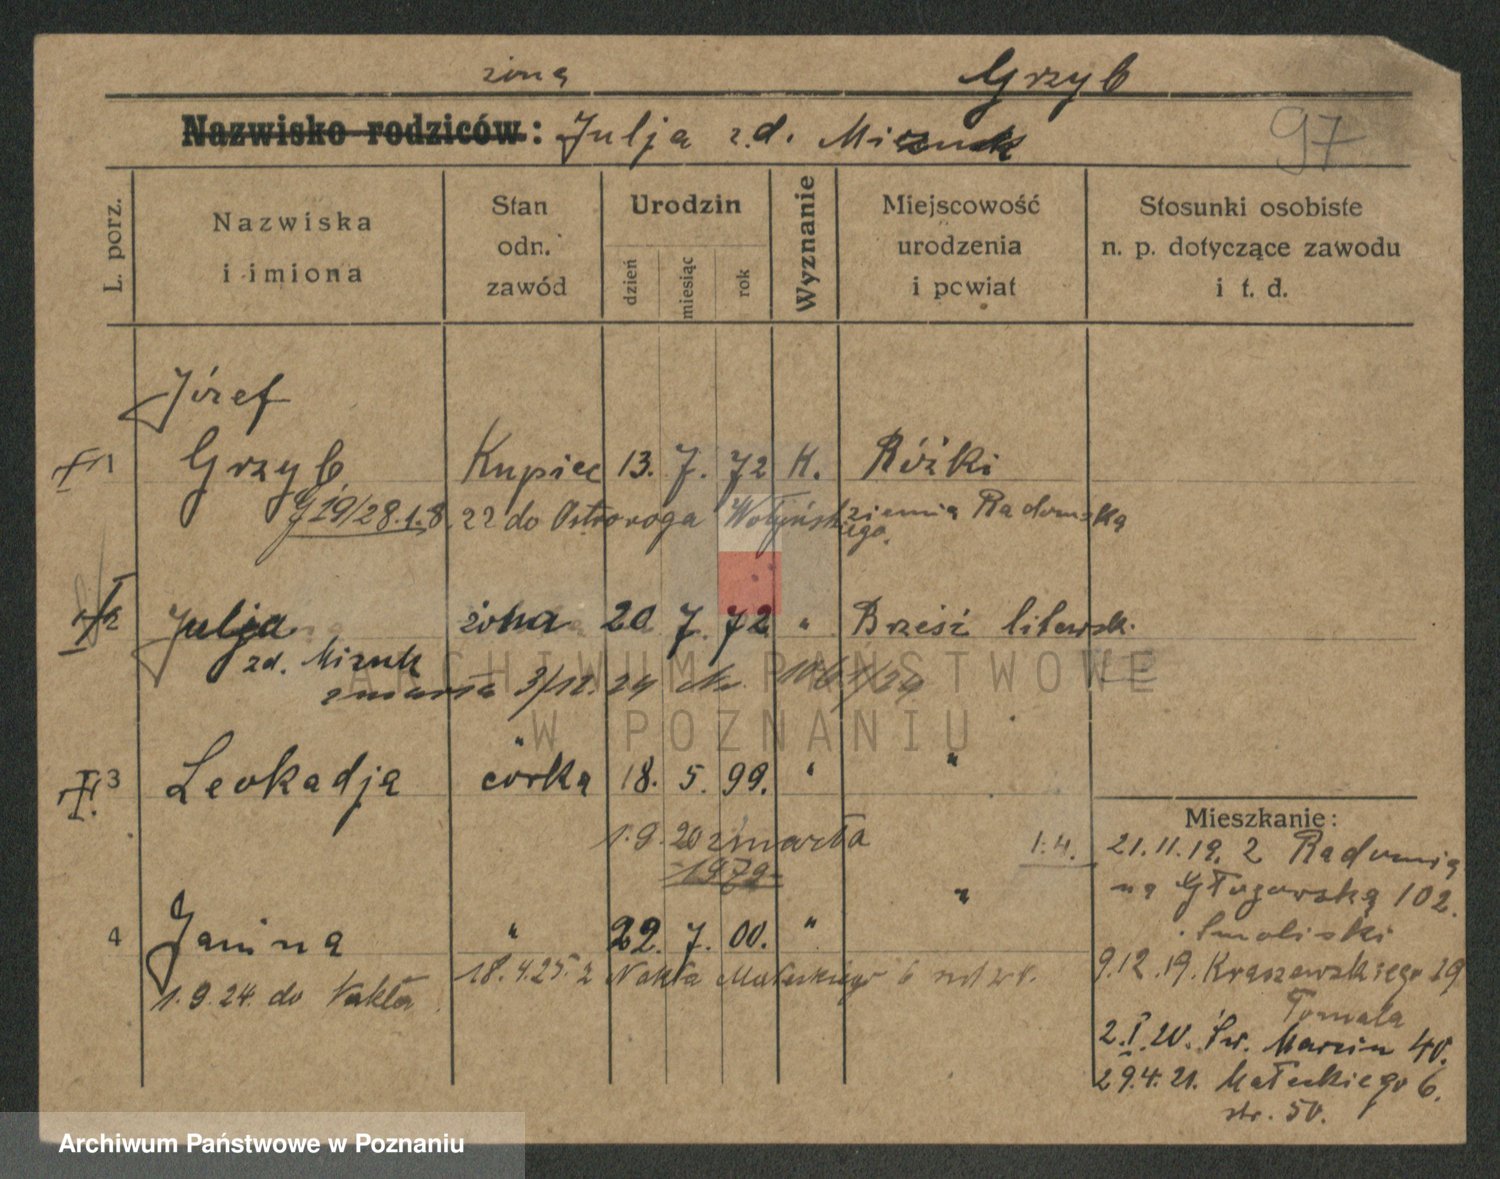 żona Grzyb
Nazwisko rodziców: Julja z.d. Mizuk
97
L. porz.
Nazwiska i imiona
Stan odn. zawód
Urodzin
dzień miesiąc rok
Wyznanie
Miejscowość urodzenia i powiat
Stosunki osobiste n. p. dotyczące zawodu i t. d.
Józef
1 Grzyb Kupiec 13. 7. 72 K. Różki
19/28.1.8. 22 do Ostroroga Wołyńskiego. ziemia Radomska
2 Julja żona 20 7. 72 " Brześć litewsk.
zd. Mizuk
zmarła 3/12. 24
ARCHIWUM PAŃSTWOWE
W POZNANIU
3 Leokadja córka 18. 5. 99. " "
1.9.20 zmarła
1979
4 Janina " 22. 7. 00. " "
18.4.25. z Nakła Małeckiego 6
1.9.24. do Nakła
Mieszkanie:
1.4. 21.11.19. z Radomia
na Głogowską 102.
Smoliski
9.12.19. Kraszewskiego 19
Tomala
2.I.20. Św. Marcin 40.
29.4.21. Małeckiego 6.
str. 50.
Archiwum Państwowe w Poznaniu